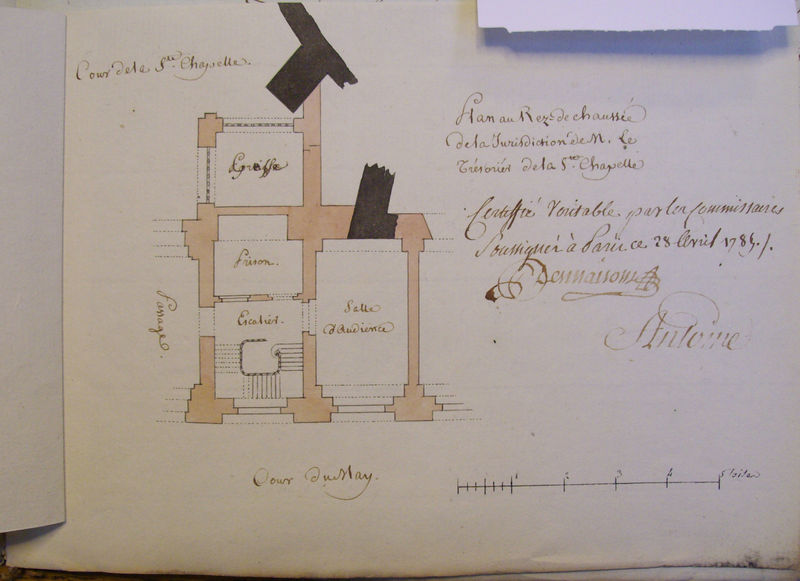 Cour de la Ste. Chapelle.
Plan au Rez-de chaussée
de la Jurisdiction de M. Le
Trésorier de la Ste Chapelle
Certiffié Veritable par les Commissaires
Soussignés à Paris ce 28 Avril 1785./.
Desmaisons
Antoine
Greffe
Prison.
Escalier.
Salle
d'Audience
Passage.
Cour du May.
1 2 3 4 5 toises